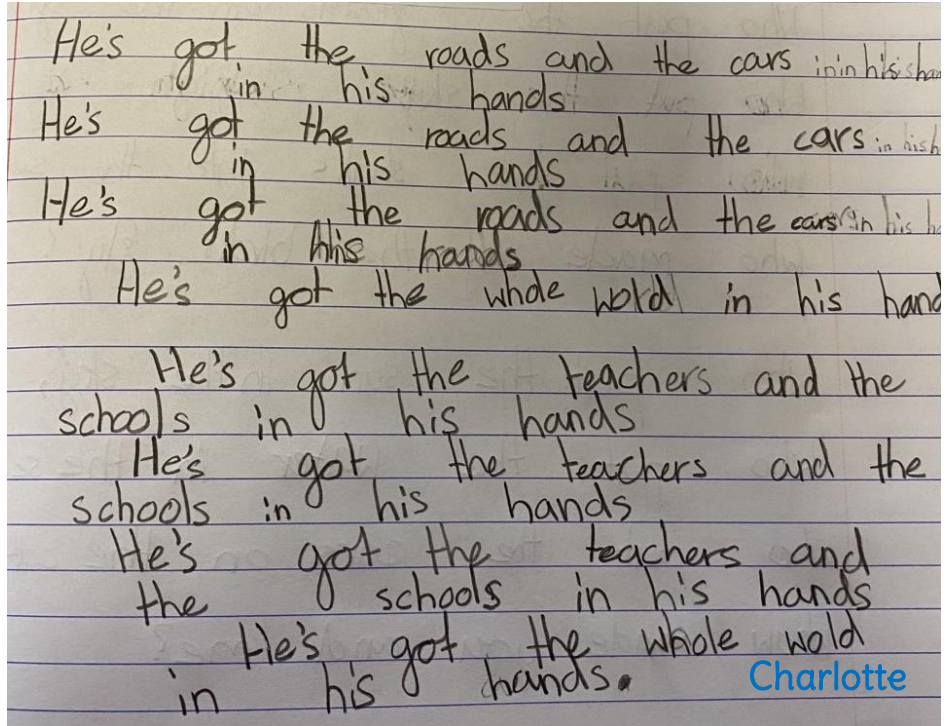 He's got the roads and the cars in in his
in his hands
He's got the roads and the cars in his
in his hands
He's got the roads and the cars in his
in his hands
He's got the whole wold in his hand
He's got the teachers and the
schools in his hands
He's got the teachers and the
schools in his hands
He's got the teachers and
the schools in his hands
He's got the whole wold
in his hands.
Charlotte